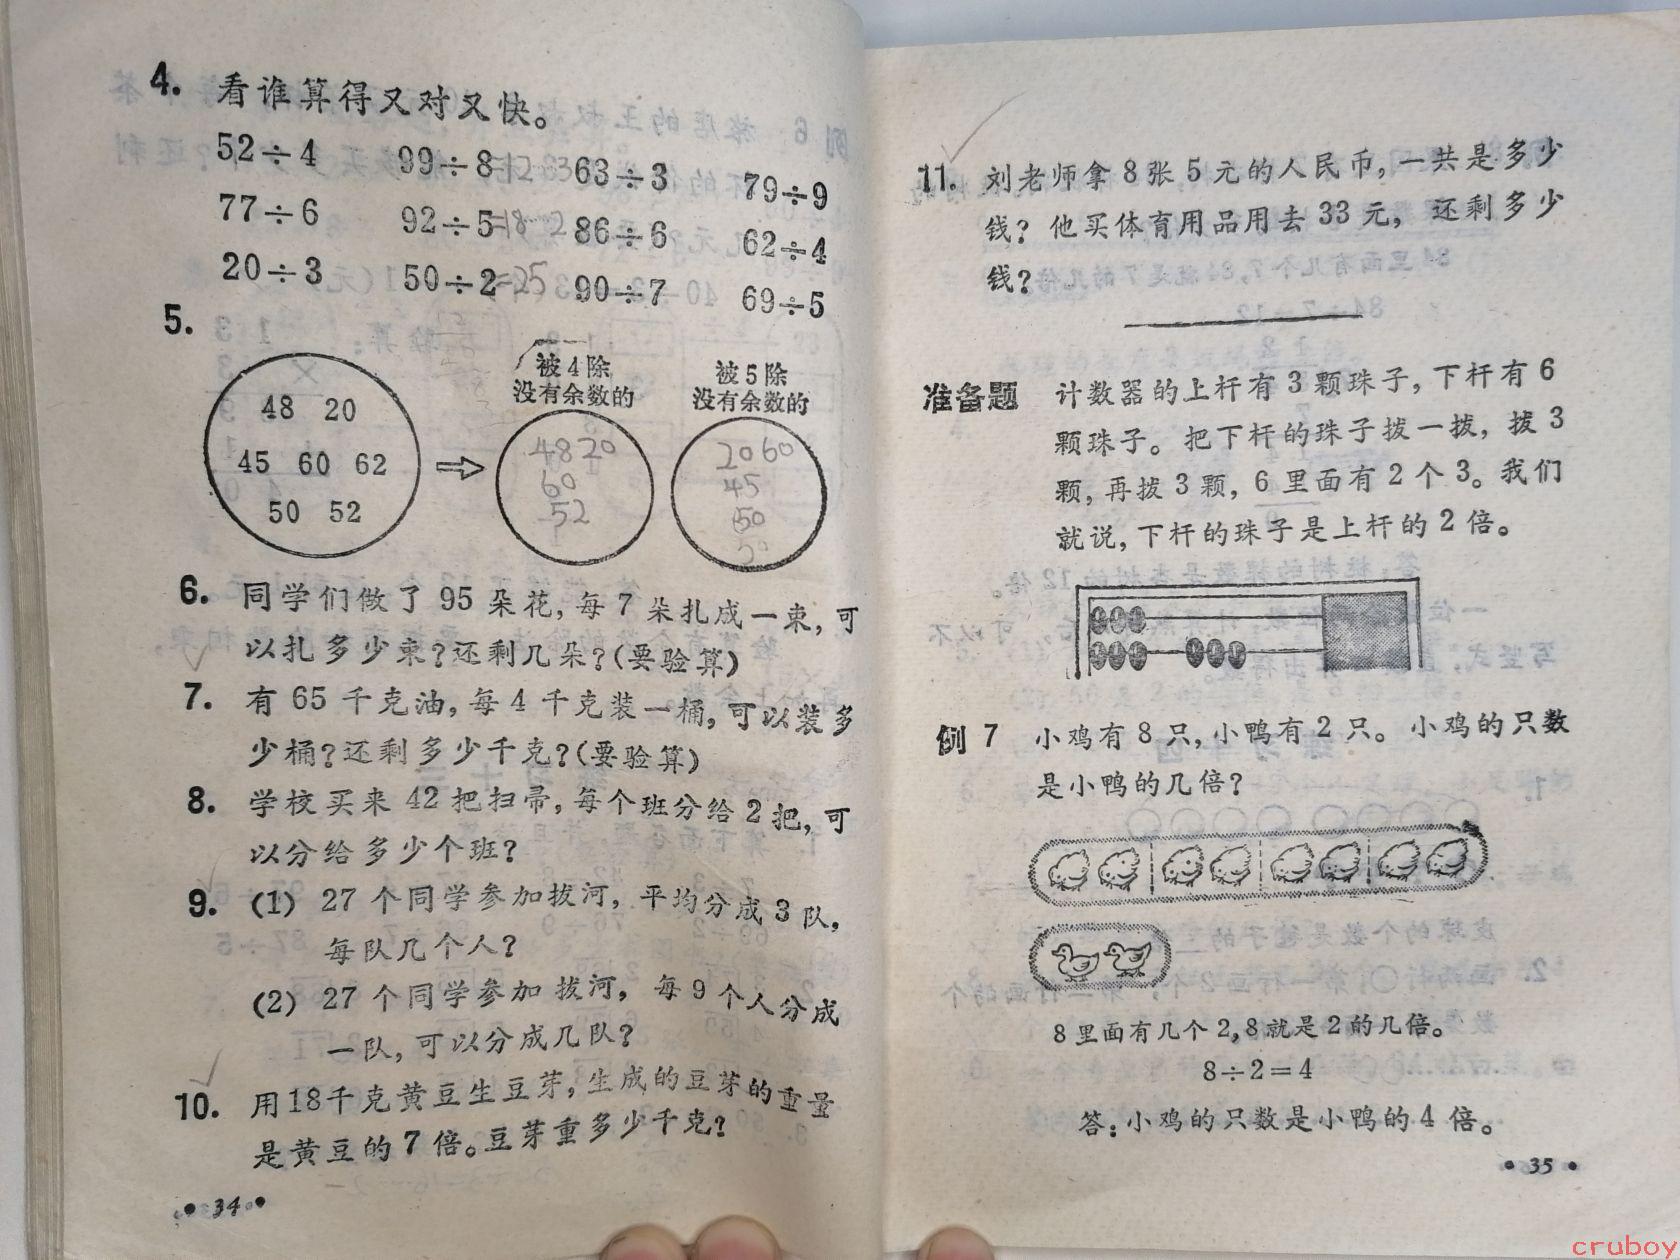 4. 看谁算得又对又快。
52÷4 99÷8=12 63÷3 79÷9
77÷6 92÷5=18…2 86÷6 62÷4
20÷3 50÷2=25 90÷7 69÷5
5.
被4除
没有余数的
被5除
没有余数的
48 20
45 60 62
50 52
48 20
60
52
20 60
45
50
6. 同学们做了 95 朵花，每 7 朵扎成一束，可
以扎多少束？还剩几朵？(要验算)
7. 有 65 千克油，每 4 千克装一桶，可以装多
少桶？还剩多少千克？(要验算)
8. 学校买来 42 把扫帚，每个班分给 2 把，可
以分给多少个班？
9. (1) 27 个同学参加拔河，平均分成 3 队，
每队几个人？
(2) 27 个同学参加拔河，每 9 个人分成
一队，可以分成几队？
10. 用18千克黄豆生豆芽，生成的豆芽的重量
是黄豆的 7 倍。豆芽重多少千克？
•34•
11. 刘老师拿 8 张 5 元的人民币，一共是多少
钱？他买体育用品用去 33 元，还剩多少
钱？
准备题 计数器的上杆有 3 颗珠子，下杆有 6
颗珠子。把下杆的珠子拨一拨，拨 3
颗，再拨 3 颗，6 里面有 2 个 3。我们
就说，下杆的珠子是上杆的 2 倍。
例 7 小鸡有 8 只，小鸭有 2 只。小鸡的只数
是小鸭的几倍？
8 里面有几个 2，8 就是 2 的几倍。
8÷2=4
答：小鸡的只数是小鸭的 4 倍。
•35•
cruboy